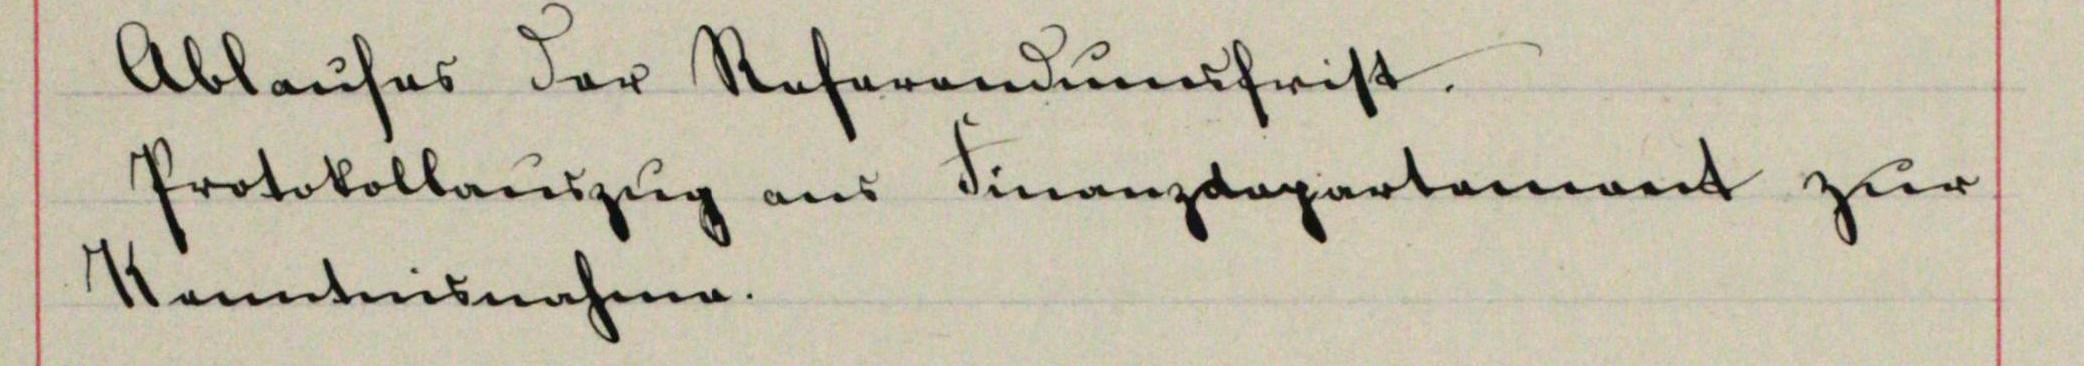 Ablaufes der Referendumsfrist.
Protokollauszug ans Finanzdepartement zur
Kenntnisnahme.